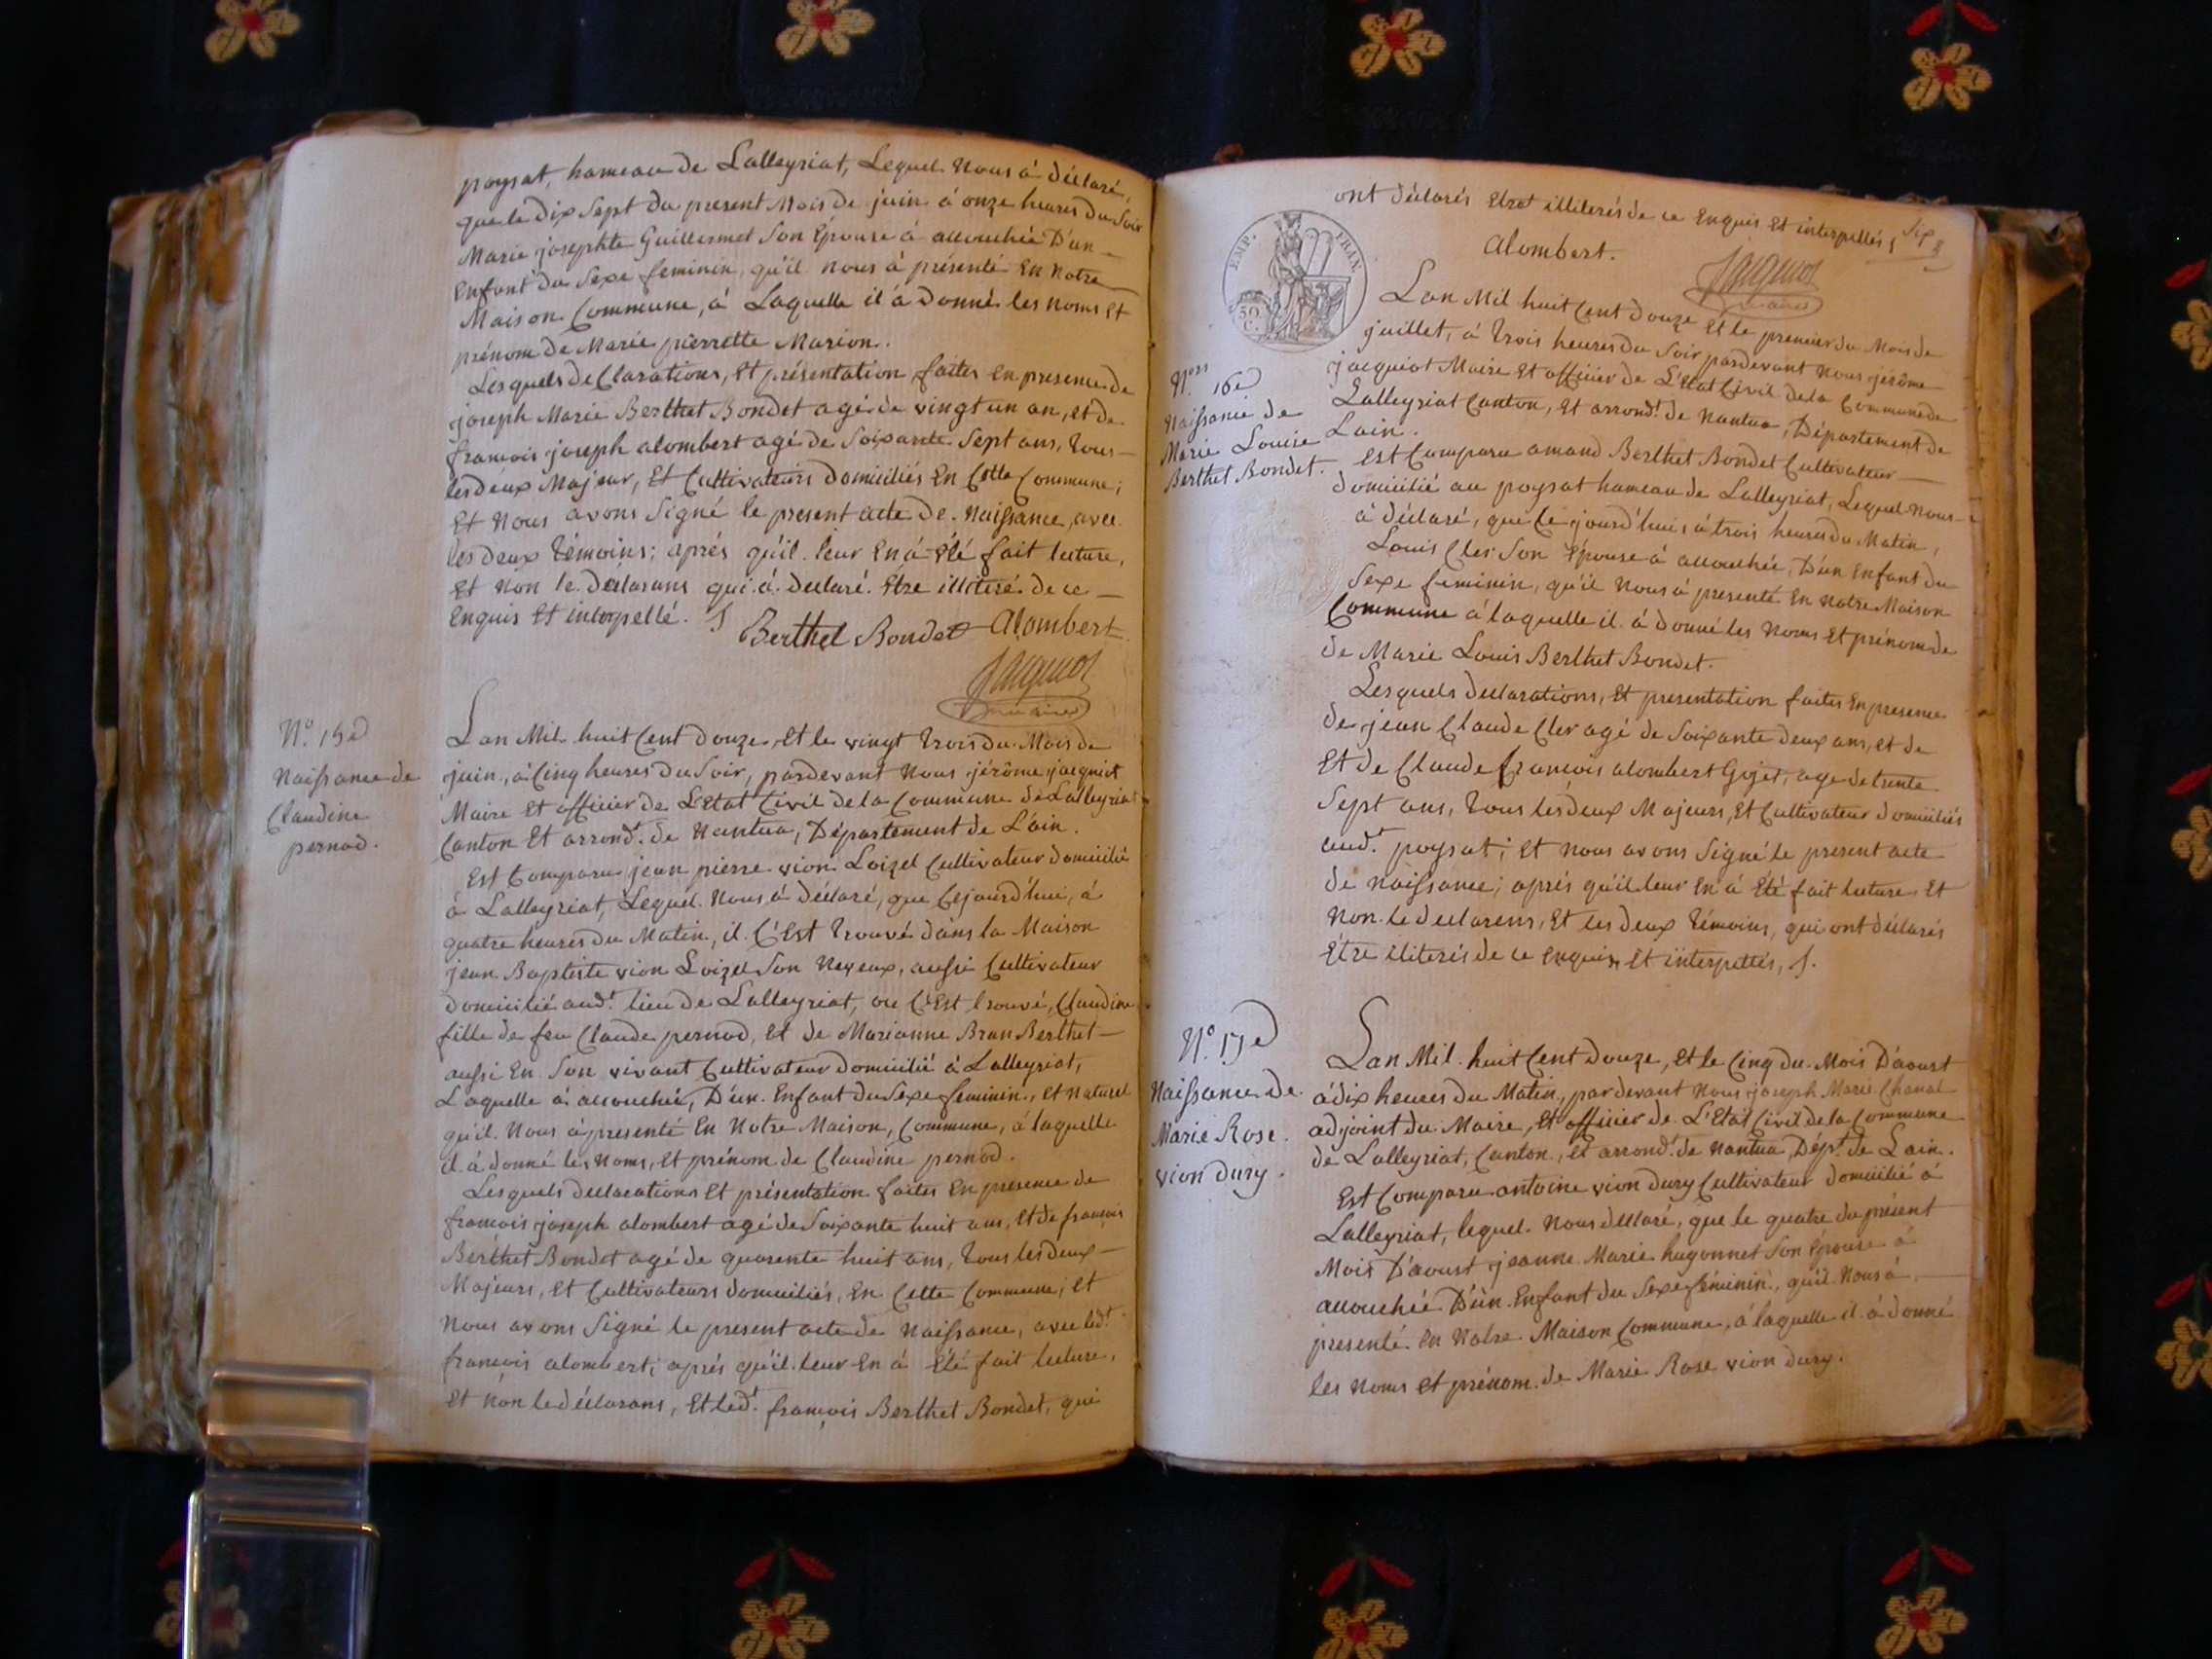 poysat, hameau de Lalleyriat, Lequel Nous à déclaré,
que le Dix Sept du present Mois de juin à onze heures du Soir
Marie josephte Guillermet Son Épouse à accouchée D'un
Enfant du Sexe feminin, qu'il nous à présenté En Notre
Maison Commune, à Laquelle il à donné les noms Et
prénom de Marie pierrette Marion.
Lesquels deClarations, Et présentation faites En presence de
joseph Marie Berthet Bondet agé de vingt un an, et de
francois joseph alombert agé de Soixante Sept ans, tous
les deux Majeur, Et Cultivateurs domiciliés En Cette Commune;
Et Nous avons Signé le present acte de Naissance, avec
les deux témoins; aprés qu'il leur En à Été fait lecture,
Et Non le déclarans qui à declaré Etre illiteré de ce
Enquis Et interpellé.
Berthet Bondet Alombert
Jacquiot
maire
N.° 15e
Naissance de
Claudine
pernod.
Lan Mil huit Cent douze, Et le vingt trois du Mois de
juin, à Cinq heures du Soir, pardevant Nous jérôme jacquiot
Maire Et officier de L'Etat Civil de la Commune de Lalleyriat
Canton Et arrond.t de Nantua, Département de L'ain.
Est Comparu jean pierre vion Loizel Cultivateur domicilié
à Lalleyriat, Lequel Nous à declaré, que Cejourd'hui, à
quatre heures du Matin, il C'Est trouvé dans la Maison
jean Baptiste vion Loizel Son Neveux, aussi Cultivateur
domicilié aud.t lieu de Lalleyriat, ou C'Est trouvé, Claudine
fille de feu Claude pernod, Et de Marianne Brun Berthet
aussi En Son vivant Cultivateur domicilié à Lalleyriat,
Laquelle à accouchée, D'un Enfant du Sexe feminin, et naturel
qu'il Nous à presenté En Notre Maison, Commune, à laquelle
il à donné les Noms, Et prénom de Claudine pernod.
Lesquels declarations Et présentation faites En presence de
francois joseph alombert agé de Soixante huit ans, Et de françois
Berthet Bondet agé de quarente huit ans, tous les deux
Majeurs, Et Cultivateurs domiciliés, En Cette Commune; Et
Nous avons Signé le present acte de Naissance, avec led.t
françois alombert; aprés qu'il leur En à Été fait lecture,
Et non le déclarans, Et led.t françois Berthet Bondet, qui
Six
ont déclarés Etre illiterés de ce Enquis Et interpellés
alombert.
Jacquiot
maire
EMP. FRAN.
50 C.
N.° 16e
Naissance de
Marie Louise
Berthet Bondet.
Lan Mil huit Cent douze Et le premier du Mois de
juillet, à trois heures du Soir pardevant Nous jérôme
jacquiot Maire Et officier de L'Etat Civil de la Commune de
Lalleyriat Canton, Et arrond.t de Nantua, Département de
Lain.
Est Comparu amand Berthet Bondet Cultivateur
domicilié au poysat hameau de Lalleyriat, Lequel Nous
à déclaré, que Ce jourd'hui, à trois heures du Matin,
Louis Cler Son Épouse à accouchée, D'un Enfant du
Sexe feminin, qu'il Nous à presenté En Notre Maison
Commune à laquelle il à donné les Noms Et prénom de
de Marie Louis Berthet Bondet.
Lesquels declarations, Et presentation faites En presence
de jean Claude Cler agé de Soixante deux ans, et de
Et de Claude francois alombert Gojet, age de trente
Sept ans, tous les deux Majeurs, Et Cultivateur domiciliés
aud.t poysat; Et nous avons Signé le present acte
de naissance; aprés qu'il leur En à Été fait lecture Et
Non le declarens, Et les deux témoins, qui ont déclarés
Être iliterés de ce enquis Et interpellés,
N.° 17e
Naissance de
Marie Rose
vion dury.
Lan Mil huit Cent douze, Et le Cinq du Mois D'aoust
à dix heures du Matin, par devant Nous joseph Marie Chanal
adjoint du Maire, Et officier de L'Etat Civil de la Commune
de Lalleyriat, Canton, Et arrond.t de Nantua, Dép.t de Lain.
Est Comparu antoine vion dury Cultivateur domicilié à
Lalleyriat, lequel Nous declaré, que le quatre du présent
Mois D'aoust jeanne Marie hugonnet Son Épouse à
accouchée D'un Enfant du Sexe féminin, qu'il Nous à
presenté En Notre Maison Commune, à laquelle il à donné
les Noms Et prénom de Marie Rose vion dury.